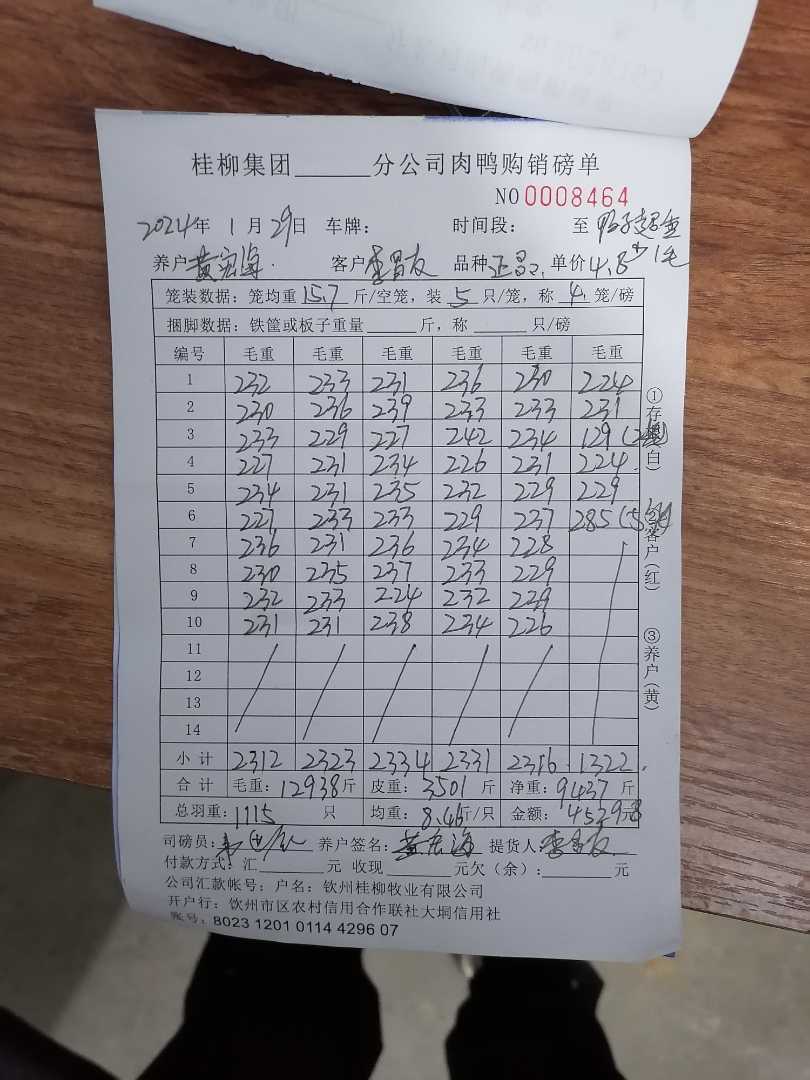 桂柳集团______分公司肉鸭购销磅单
NO 0008464
2024年 1 月 29日 车牌: 时间段: 至
养户 黄宏海 客户 李昌友 品种 正昌 单价 4.8 少1毛
笼装数据: 笼均重 15.7 斤/空笼, 装 5 只/笼, 称 4 笼/磅
捆脚数据: 铁筐或板子重量______斤, 称______只/磅
编号 毛重 毛重 毛重 毛重 毛重 毛重
1 232 233 231 236 230 224
2 230 236 239 233 233 231
3 233 229 227 242 234 129
4 227 231 234 226 231 224
5 234 231 235 232 229 229
6 227 233 233 229 237 285
7 236 231 236 234 228
8 230 235 237 233 229
9 232 233 224 232 239
10 231 231 238 234 226
11
12
13
14
小计 2312 2323 2334 2331 2316 1322
合计 毛重: 12938斤 皮重: 3501 斤 净重: 9437 斤
总羽重: 1115 只 均重: 8.46斤/只 金额: 元
司磅员: 养户签名: 黄宏海 提货人: 李昌友
付款方式: 汇______元 收现______元欠(余):______元
公司汇款帐号: 户名: 钦州桂柳牧业有限公司
开户行: 钦州市区农村信用合作联社大垌信用社
账号: 8023 1201 0114 4296 07
①存根(白) ②客户(红) ③养户(黄)